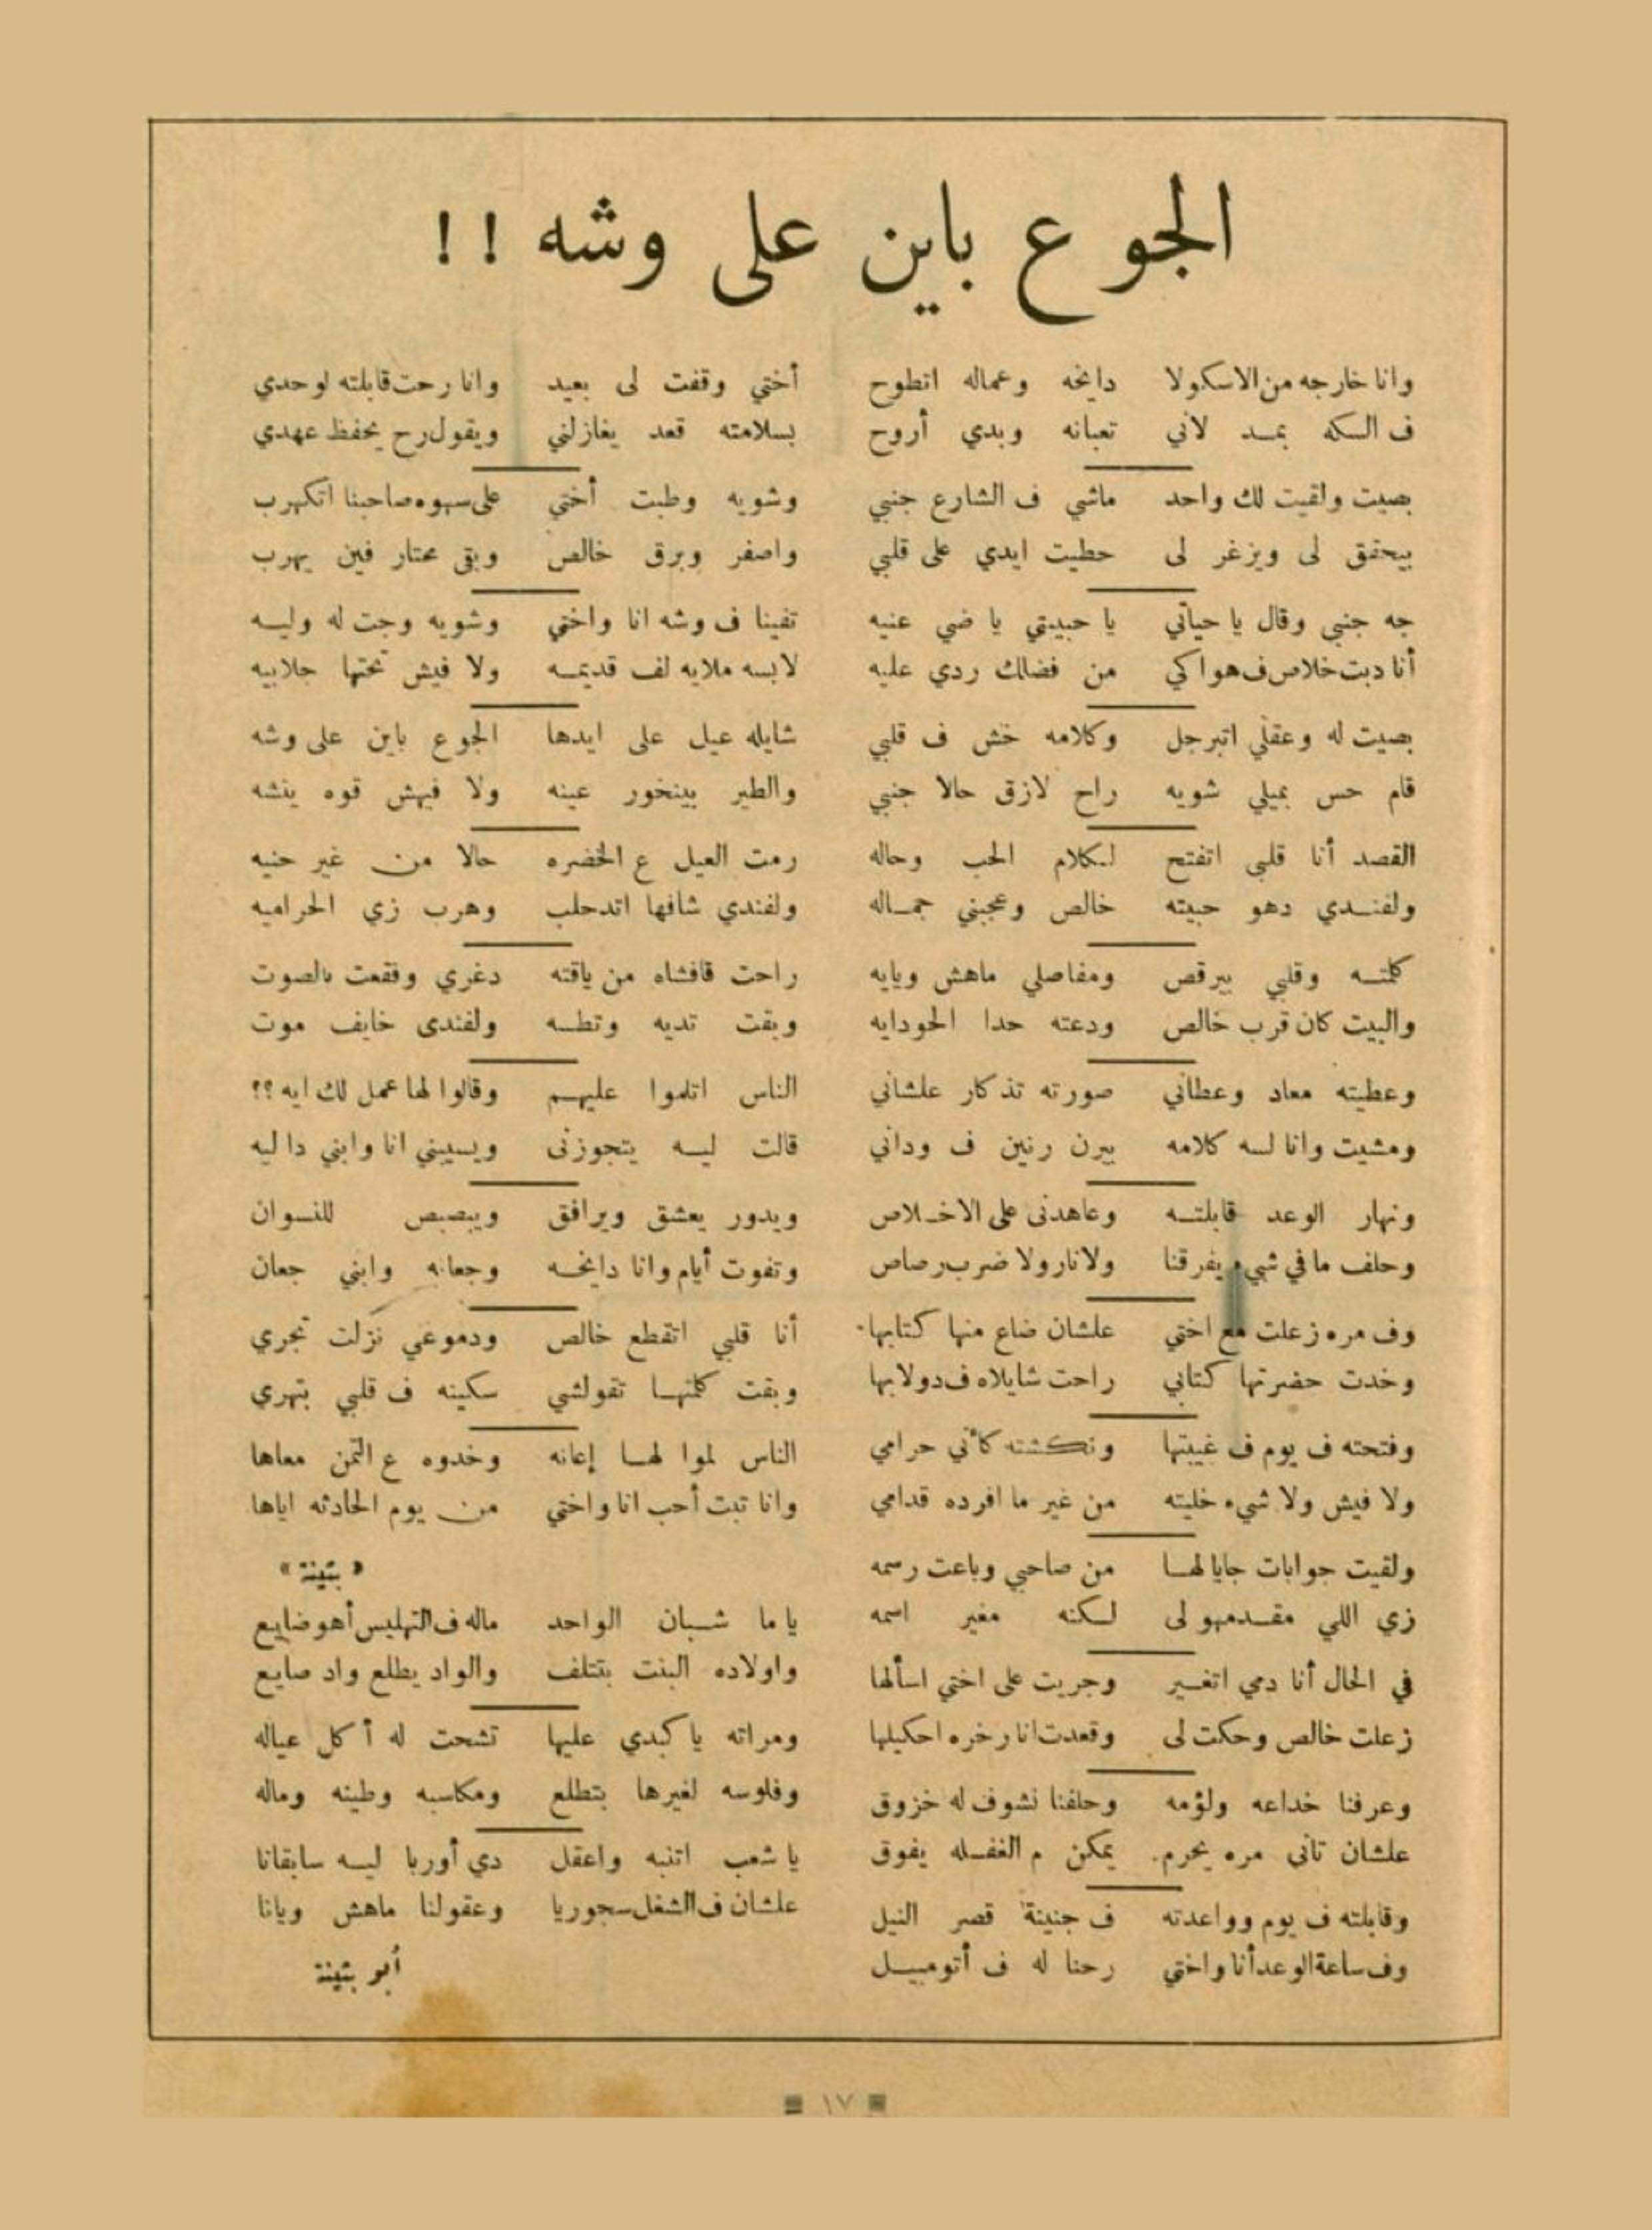 الجوع باين على وشه !!
وانا خارجه من الاسكولا دايخه وعماله اتطوح
ف السكه بمد لاني تعبانه وبدي أروح
بصيت ولقيت لك واحد ماشي ف الشارع جنبي
بيحقق لى ويزغر لى حطيت ايدي على قلبي
جه جنبي وقال يا حياتي يا حبيبتي يا ضي عنيه
أنا دبت خلاص ف هواكي من فضلك ردي عليه
بصيت له وعقلي اتبرجل وكلامه خش ف قلبي
قام حس بميلي شويه راح لازق حالا جنبي
القصد أنا قلبي اتفتح لكلام الحب وحاله
ولفندي دهو حبيته خالص وعجبني جماله
كلمته وقلبي بيرقص ومفاصلي ماهش ويايه
والبيت كان قرب خالص ودعته حدا الحودايه
وعطيته معاد وعطاني صورته تذكار علشاني
ومشيت وانا لسه كلامه بيرن رنين ف وداني
ونهار الوعد قابلته وعاهدنى على الاخلاص
وحلف ما في شيء يفرقنا ولا نار ولا ضرب رصاص
وف مره زعلت مع اختي علشان ضاع منها كتابها
وخدت حضرتها كتابي راحت شايلاه ف دولابها
وفتحته ف يوم ف غيبتها ونكشته كأني حرامي
ولا فيش ولا شيء خليته من غير ما افرده قدامي
ولقيت جوابات جايا لها من صاحبي وباعت رسمه
زي اللي مقدمهو لى لكنه مغير اسمه
في الحال أنا دمي اتغير وجريت على اختي اسألها
زعلت خالص وحكت لى وقعدت انا رخره احكيلها
وعرفنا خداعه ولؤمه وحلفنا نشوف له خزوق
علشان تاني مره يحرم يمكن م الغفله يفوق
وقابلته ف يوم وواعدته ف جنينة قصر النيل
وف ساعة الوعد أنا واختي رحنا له ف أتومبيل
أختي وقفت لى بعيد وانا رحت قابلته لوحدي
بسلامته قعد يغازلني ويقول رح يحفظ عهدي
وشويه وطبت أختي على سهوه صاحبنا اتكهرب
واصفر وبرق خالص وبقى محتار فين يهرب
تفينا ف وشه انا واختي وشويه وجت له وليه
لابسه ملايه لف قديمه ولا فيش تحتها جلابيه
شايله عيل على ايدها الجوع باين على وشه
والطير بينخور عينه ولا فيهش قوه ينشه
رمت العيل ع الخضره حالا من غير حنيه
ولفندي شافها اتدحلب وهرب زي الحراميه
راحت قافشاه من ياقته دغري وفقعت بالصوت
وبقت تديه وتطه ولفندى خايف موت
الناس اتلموا عليهم وقالوا لها عمل لك ايه ؟؟
قالت ليه يتجوزنى ويسيبني انا وابني دا ليه
ويدور يعشق ويرافق ويبصبص للنسوان
وتفوت أيام وانا دايخه وجعانه وابني جعان
أنا قلبي اتقطع خالص ودموعي نزلت تجري
وبقت كلمتها تقولشي سكينه ف قلبي بتهري
الناس لموا لها إعانه وخدوه ع التمن معاها
وانا تبت أحب انا واختي من يوم الحادثه اياها
« بثينة »
ياما شبان الواحد ماله ف التهليس أهو ضايع
واولاده البنت بتتلف والواد يطلع واد صايع
ومراته يا كبدي عليها تشحت له أكل عياله
وفلوسه لغيرها بتطلع ومكاسبه وطينه وماله
يا شعب اتنبه واعقل دي أوربا ليه سابقانا
علشان ف الشغل سجوريا وعقولنا ماهش ويانا
أبو بثينة
١٧